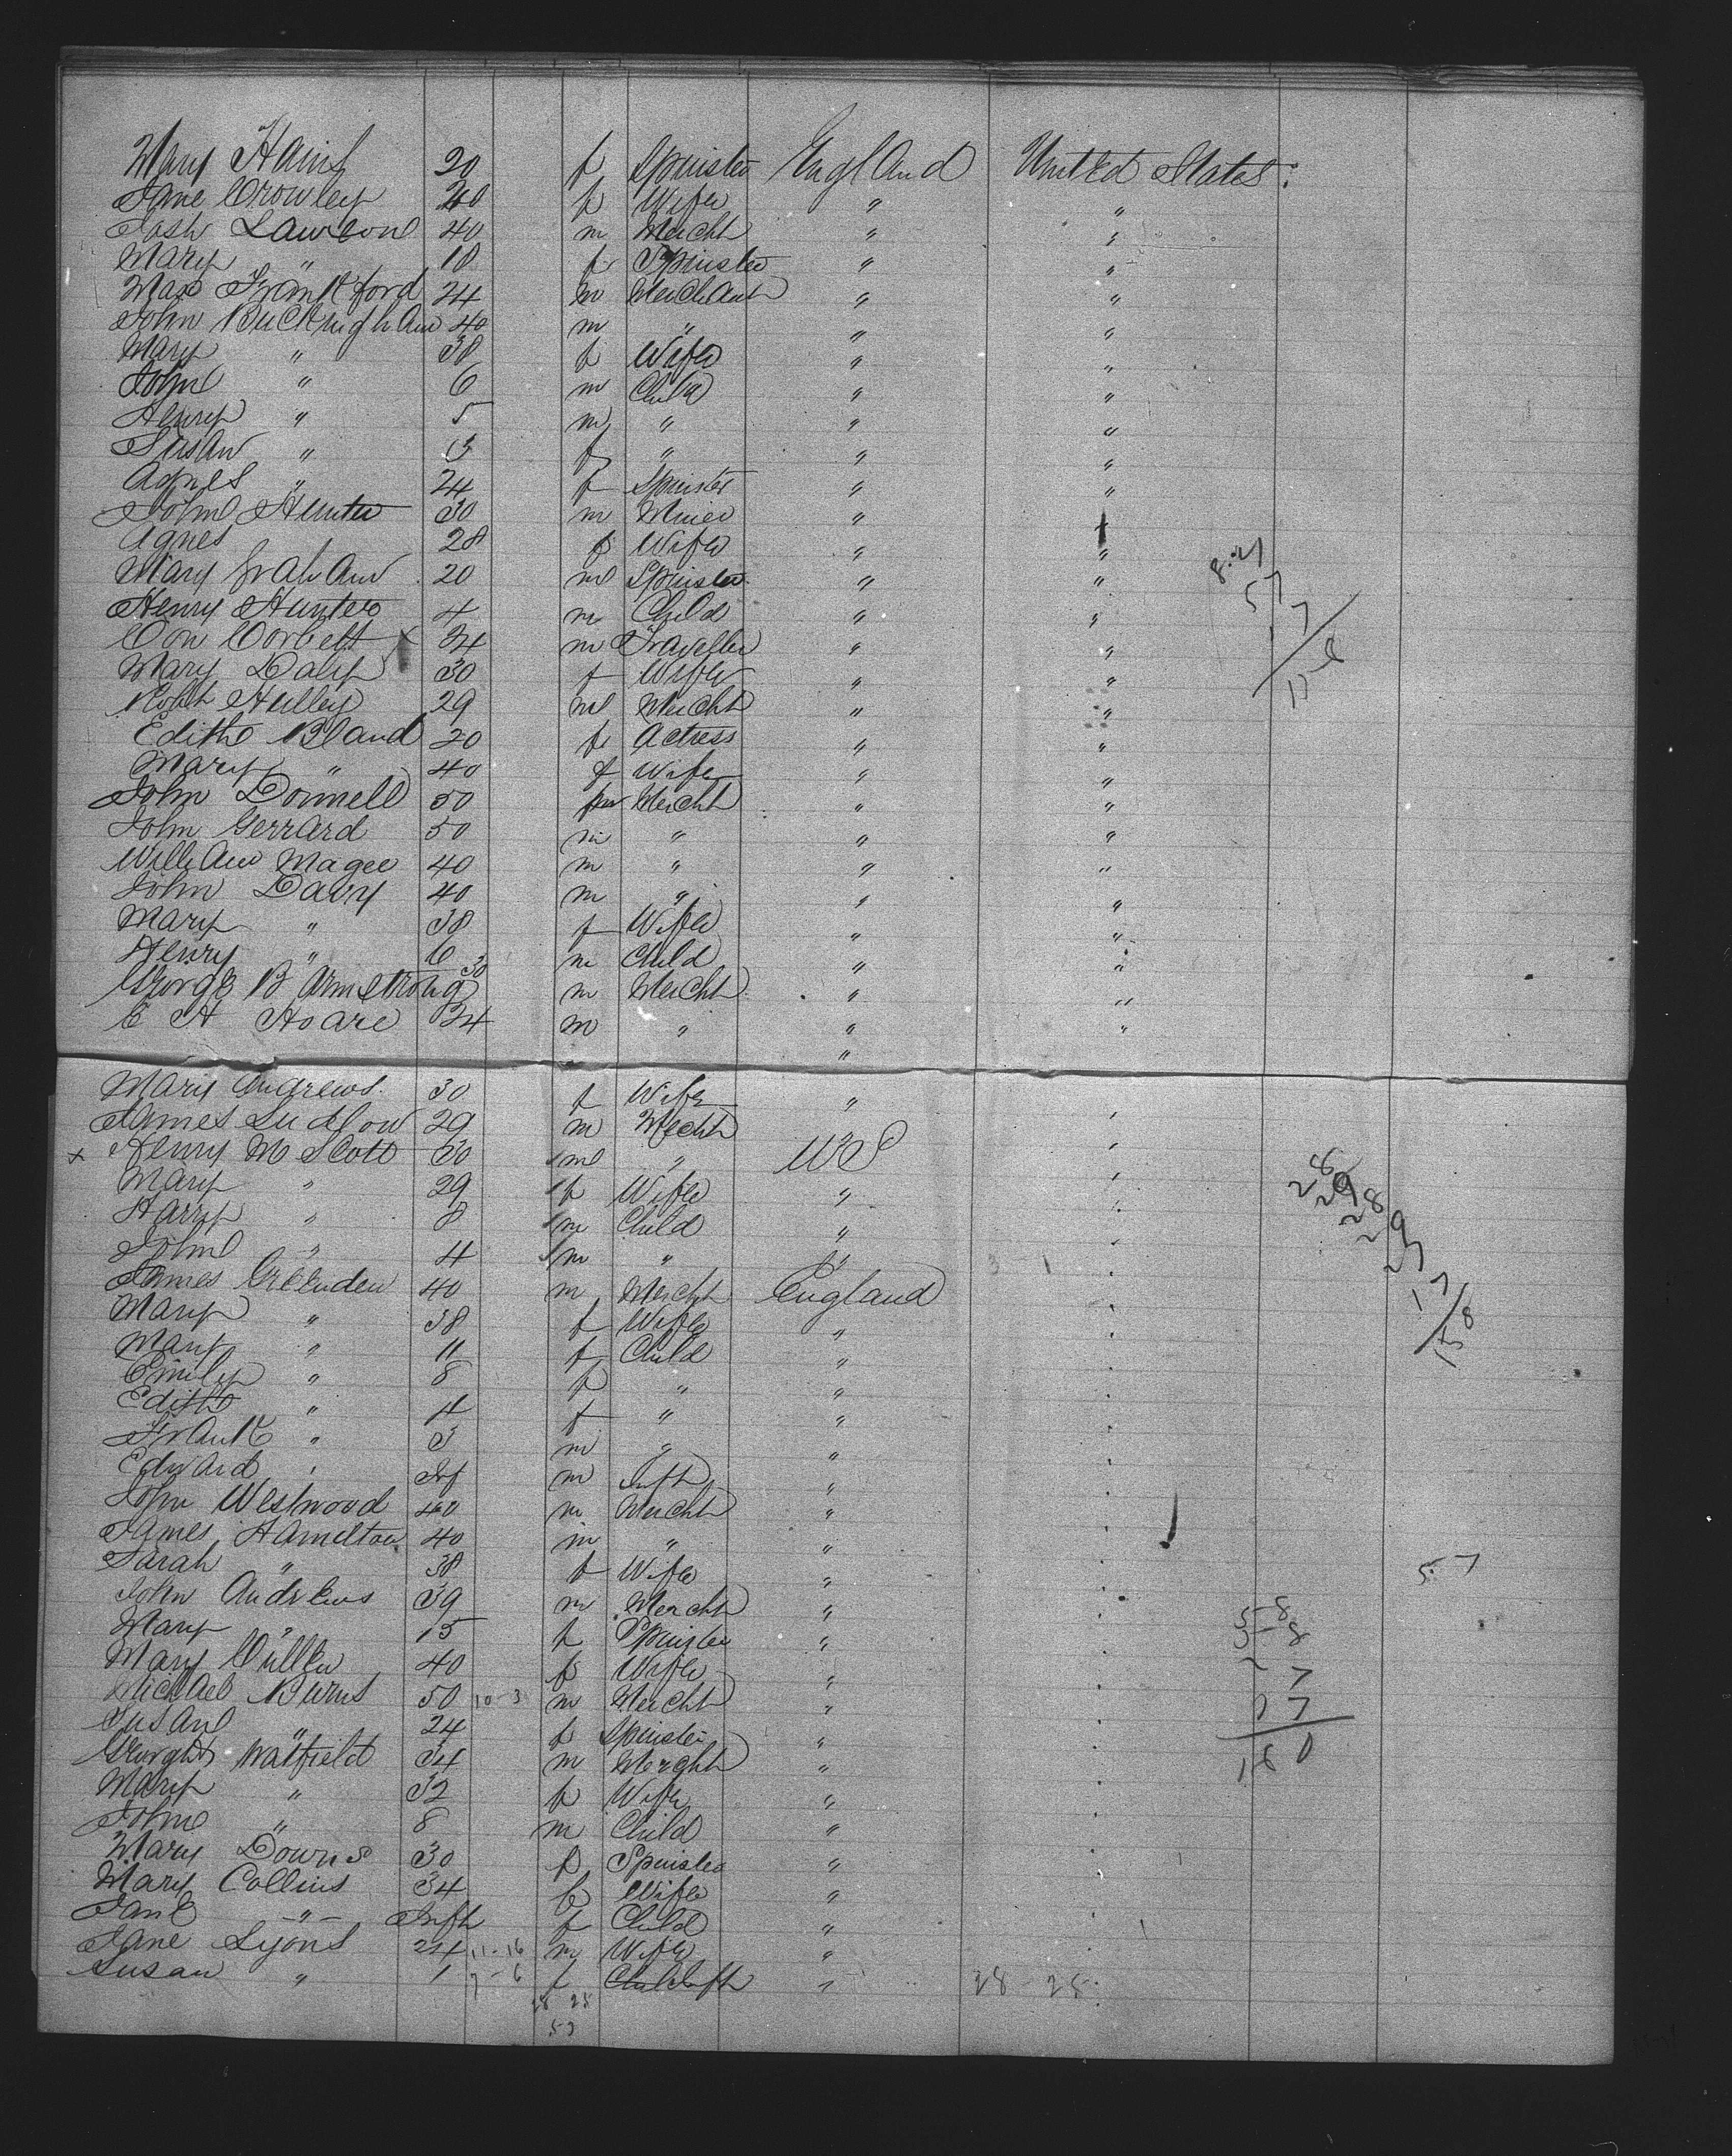 Mary Hains 20 f Spinster England United States:
Jane Crowley 40 f Wife " "
Josh Lawson 40 m Mercht " "
Mary " 18 f Spinster " "
Max Frankford 24 m Merchant " "
John Buckingham 40 m " " "
Mary " 38 f Wife " "
John " 6 m Child " "
Henry " 5 m " " "
Susan " 3 f " " "
Agnes " 24 f Spinster " "
John Hunter 30 m Miner "
Agnes 28 f Wife " "
Mary Graham 20 Spinster " "
Henry Hunter 4 m Child " "
Con Corbett x 34 m Traveller " "
Mary Daly 30 f Wife " "
Robt Hulley 29 m Mercht " "
Edith Bland 20 f Actress " "
Mary " 40 f Wife " "
John Donnell 50 m Mercht " "
John Gerrard 50 m " " "
William Magee 40 m " " "
John Davy 40 m " " "
Mary " 38 f Wife " "
Henry " 6 m Child " "
George B Armstrong 30 m Mercht " "
E H Hoare 34 m " " "
"
Mary Andrews 30 f Wife "
James Ludlow 29 m Mercht "
x Henry M Scott 30 m " US
Mary " 29 f Wife "
Harry " 8 m Child "
John " 4 m " "
James Greenden 40 m Mercht England
Mary " 38 f Wife "
Mary " 11 f Child "
Emily " 8 f " "
Edith " 4 f " "
Frank " 3 m " "
Edward " Inf m Inft "
John Westwood 40 m Mercht "
James Hamilton 40 m " "
Sarah " 38 f Wife "
John Andrews 39 m Mercht "
Mary " 15 f Spinster "
Mary Cullen 40 f Wife "
Michael Burns 50 10-3 m Mercht "
Susan " 24 f Spinster "
George Watfield 34 m Mercht "
Mary " 32 f Wife "
John " 8 m Child "
Mary Downs 30 f Spinster "
Mary Collins 34 f Wife "
Jane " Inft f Child "
Jane Lyons 24 11-16 m Wife "
Susan " 1 7-6 f Child Inft " 28-25
28 25
57
28
29
28
29
27
17
158
57
58
58
27
37
180